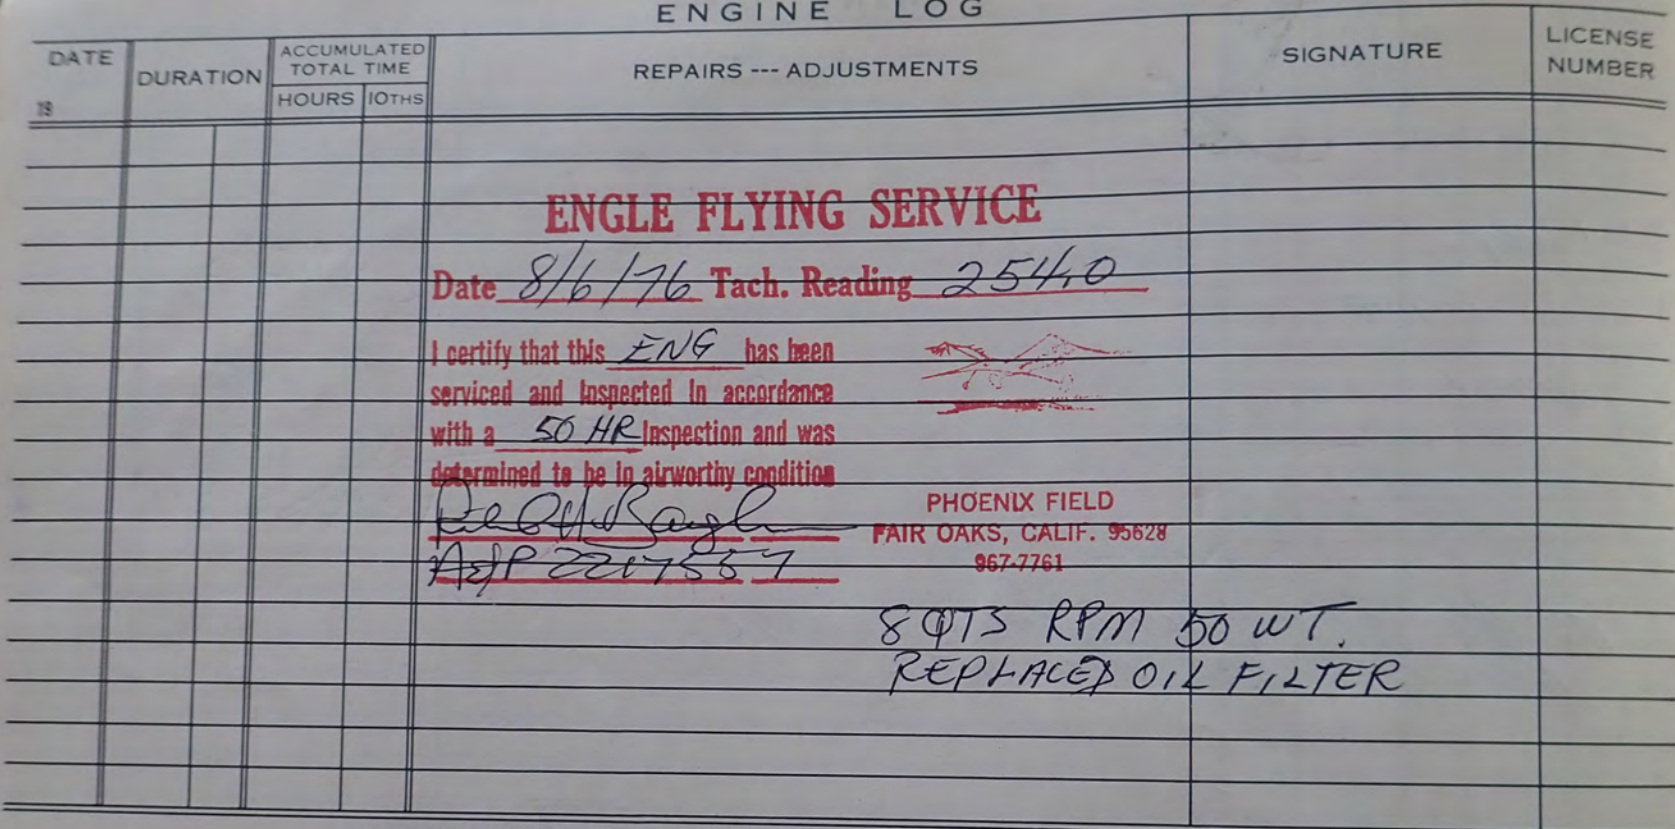 ENGINE LOG
DATE
19
DURATION
ACCUMULATED
TOTAL TIME
HOURS 10THS
REPAIRS --- ADJUSTMENTS
SIGNATURE
LICENSE
NUMBER
ENGLE FLYING SERVICE
Date 8/6/76 Tach. Reading 254.0
I certify that this ENG has been
serviced and Inspected In accordance
with a 50 HR Inspection and was
determined to be in airworthy condition
A&P 2217557
PHOENIX FIELD
FAIR OAKS, CALIF. 95628
967-7761
8 QTS RPM 50 WT.
REPLACED OIL FILTER